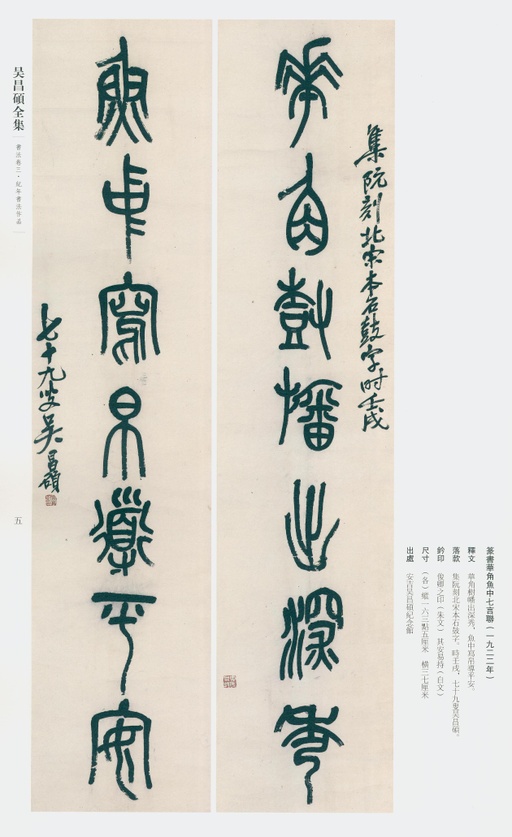 篆書華角魚中七言聯(一九二二年)
釋文 華角樹幡出深秀,魚中寫帛導平安。
落款 集阮刻北宋本石鼓字,時壬戌,七十九叟吴昌碩。
鈐印 俊卿之印(朱文) 其安易持(白文)
尺寸 (各)縱一六三點五厘米 橫三七厘米
出處 安吉吴昌碩紀念館
集阮刻北宋本石鼓字时壬戌
華角樹幡出深秀
魚中寫帛導平安
七十九叟吴昌碩
吴昌碩全集
書法卷三·紀年書法作品
五